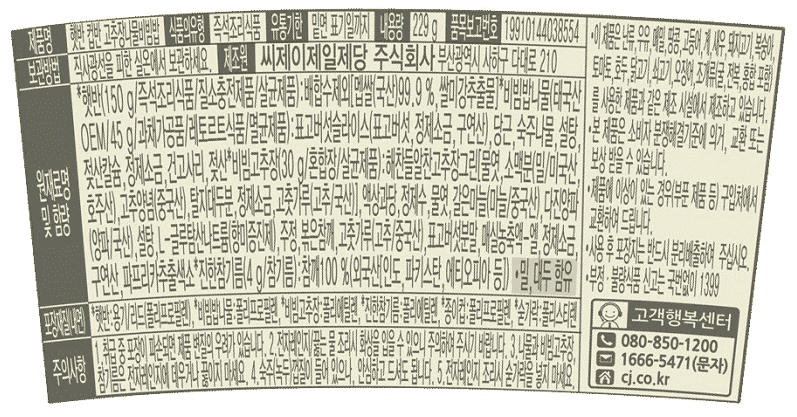 제품명 햇반 컵반 고추장나물비빔밥 식품의유형 즉석조리식품 유통기한 밑면 표기일까지 내용량 229 g 품목보고번호 19910144038554
보관방법 직사광선을 피한 실온에서 보관하세요. 제조원 씨제이제일제당 주식회사 부산광역시 사하구 다대로 210
원재료명 및 함량
*햇반(150 g/즉석조리식품/질소충전제품/살균제품) : 배합수제외[멥쌀(국산)99.9 %, 쌀미강추출물] *비빔밥나물(태국산
OEM/45 g/과채가공품/레토르트식품/멸균제품) : 표고버섯슬라이스(표고버섯, 정제소금, 구연산), 당근, 숙주나물, 설탕,
젖산칼슘, 정제소금, 건고사리, 젖산 *비빔고추장(30 g/혼합장/살균제품) : 해찬들알찬고추장그린[물엿, 소맥분(밀/미국산,
호주산), 고추양념(중국산), 탈지대두분, 정제소금, 고춧가루(고추/국산)], 액상과당, 정제수, 물엿, 갈은마늘(마늘/중국산), 다진양파
(양파/국산), 설탕, L-글루탐산나트륨(향미증진제), 주정, 볶음참깨, 고춧가루(고추/중국산), 표고버섯분말, 매실농축액-엔, 정제소금,
구연산, 파프리카추출색소 *진한참기름(4 g/참기름) : 참깨100 %(외국산(인도, 파키스탄, 에티오피아 등)) •밀, 대두 함유
포장재질(내면) *햇반·용기/리드(폴리프로필렌), *비빔밥나물:폴리프로필렌, *비빔고추장:폴리에틸렌, *진한참기름:폴리에틸렌, *종이컵:폴리프로필렌, *숟가락:폴리스티렌
주의사항
1. 취급 중 포장이 파손되면 제품 변질의 우려가 있습니다. 2. 전자레인지/끓는 물 조리시 화상을 입을 수 있으니 주의하여 주시기 바랍니다. 3. 나물과 비빔고추장,
참기름은 전자레인지에 데우거나 끓이지 마세요. 4. 숙주/녹두 껍질이 들어 있으나, 안심하고 드셔도 됩니다. 5. 전자레인지 조리시 숟가락을 넣지 마세요.
•이 제품은 난류, 우유, 메밀, 땅콩, 고등어, 게, 새우, 돼지고기, 복숭아,
토마토, 호두, 닭고기, 쇠고기, 오징어, 조개류(굴, 전복, 홍합 포함)
를 사용한 제품과 같은 제조 시설에서 제조하고 있습니다.
•본 제품은 소비자 분쟁해결기준에 의거, 교환 또는
보상 받을 수 있습니다.
•제품에 이상이 있는 경우(부푼 제품 등) 구입처에서
교환하여 드립니다.
•사용 후 포장지는 반드시 분리배출하여 주십시오.
•부정·불량식품 신고는 국번없이 1399
고객행복센터
080-850-1200
1666-5471(문자)
cj.co.kr